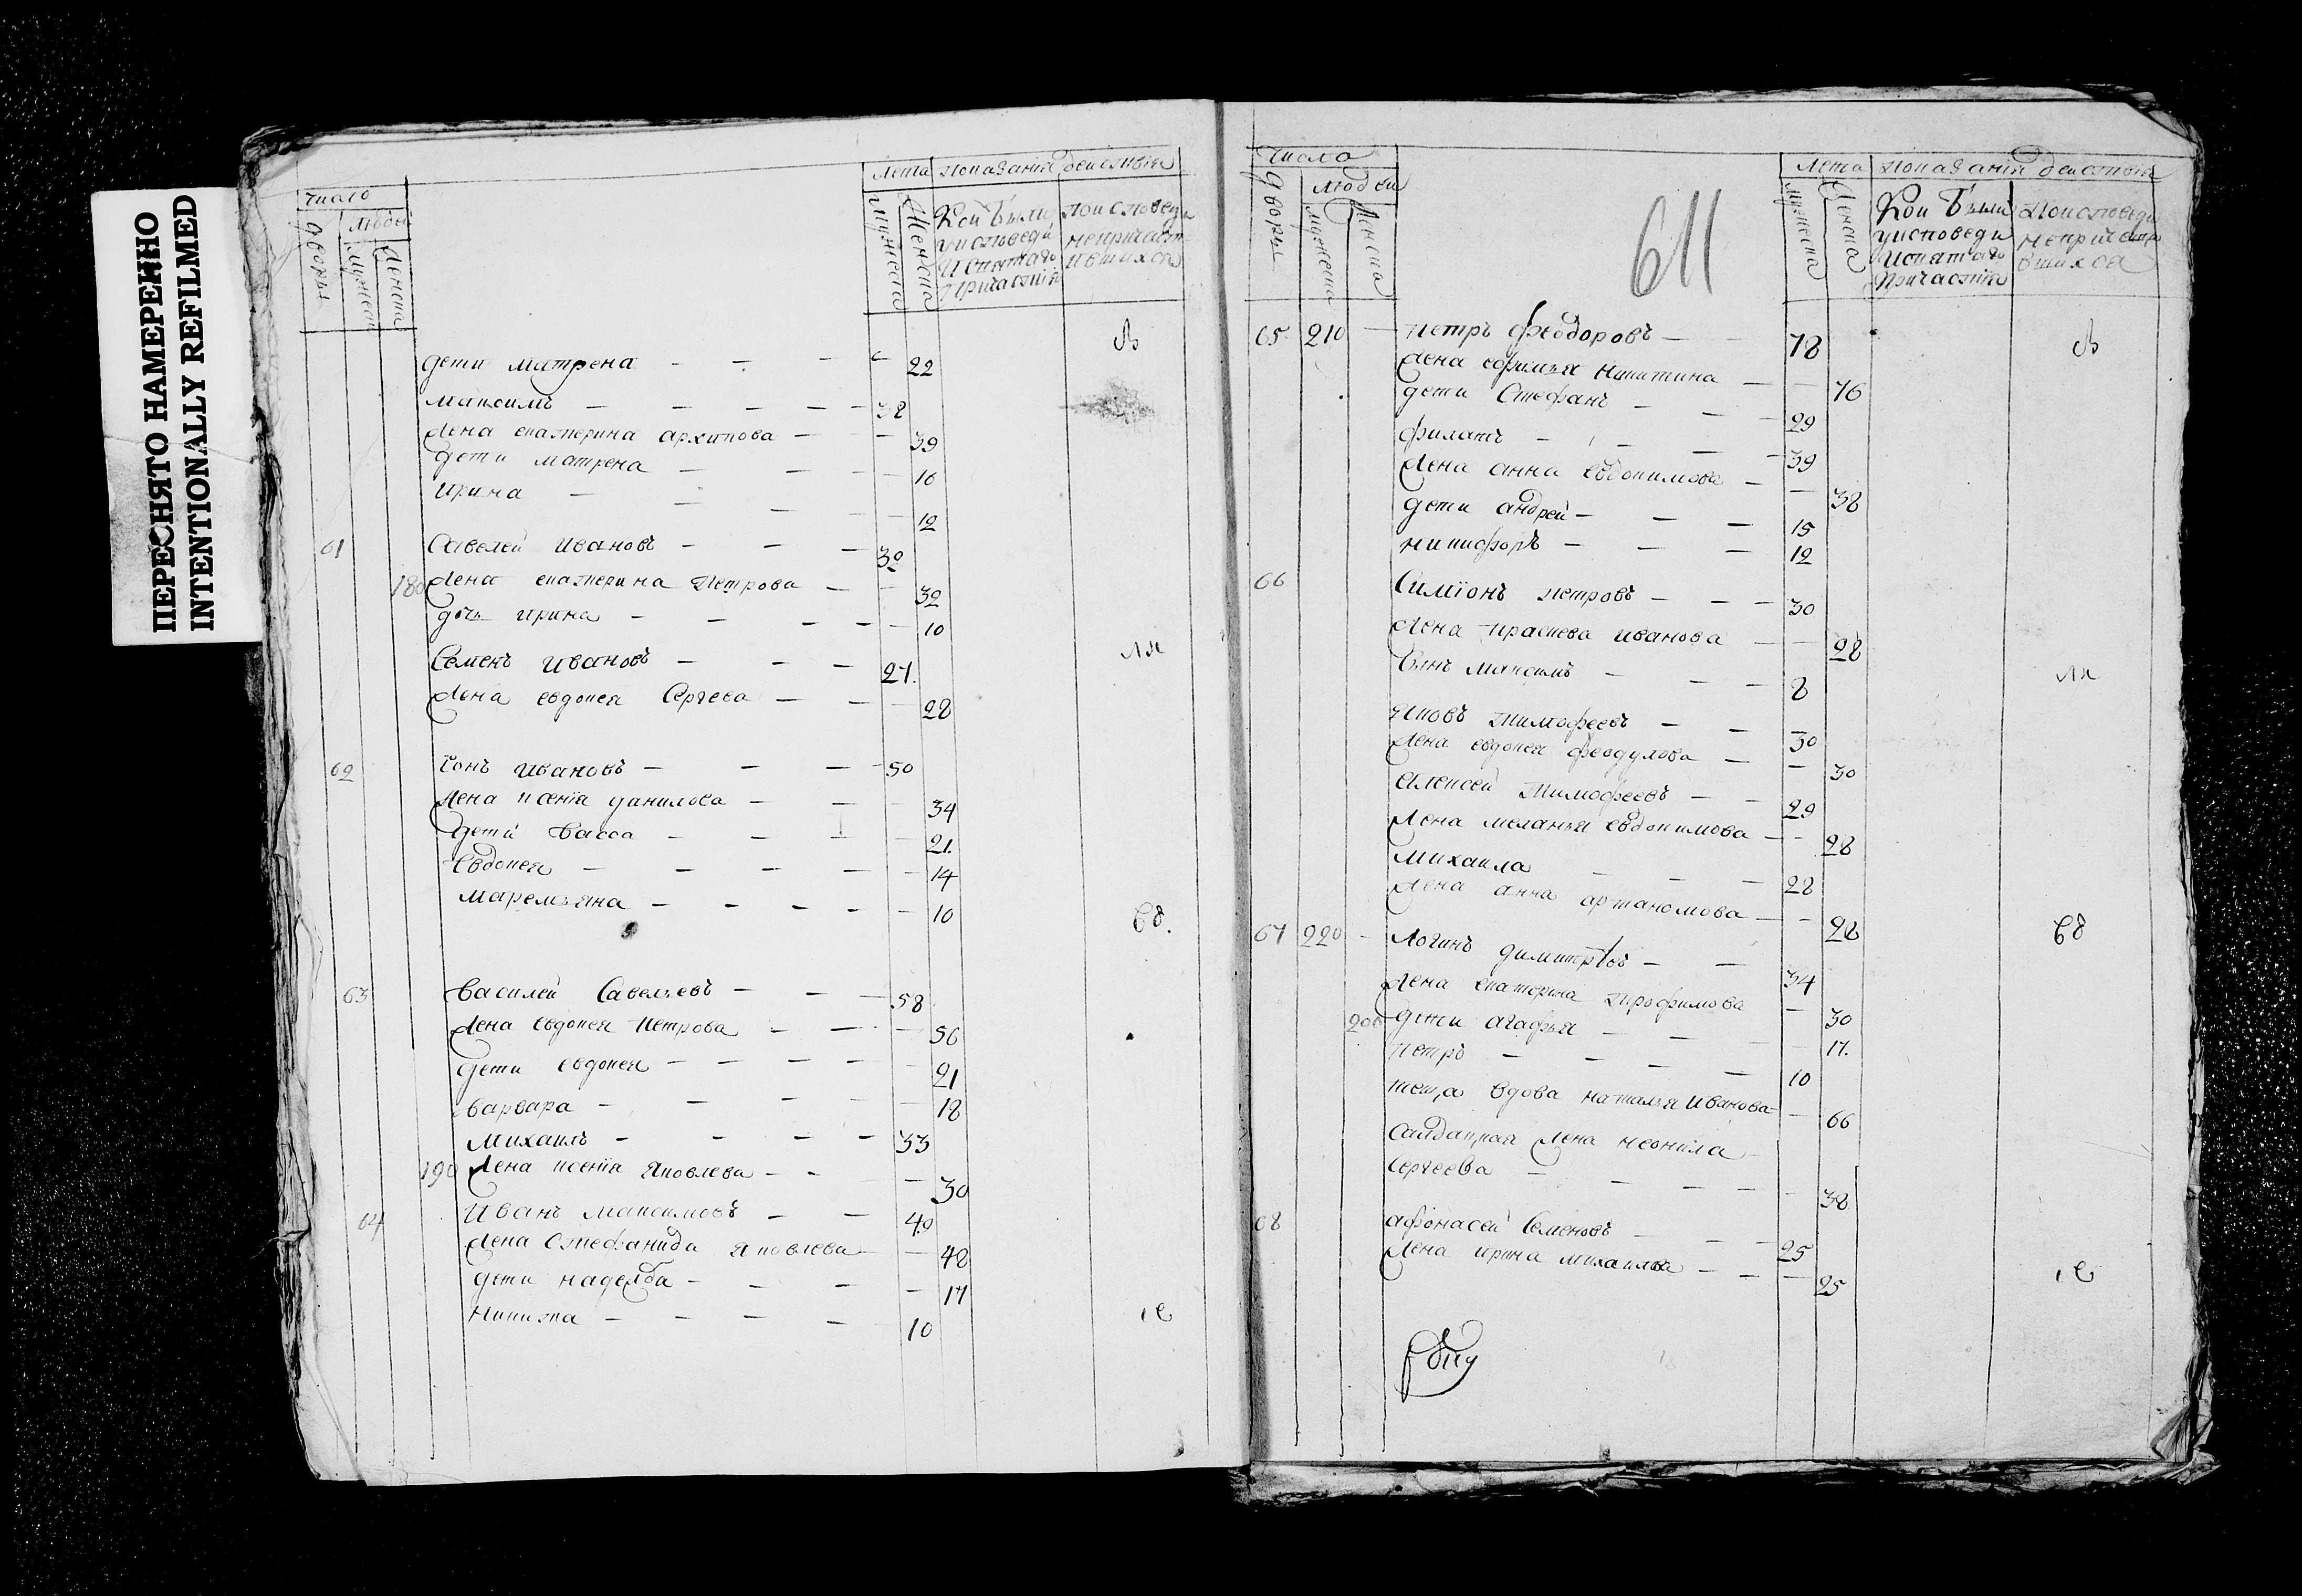 ПЕРЕСНЯТО НАМЕРЕННО
INTENTIONALLY REFILMED
число
Лета показанiя действiя
дворы
людей
мужеска
женска
мужеска
женска
Кои были
у исповеди
и святаго
причастия
по исповеди
непричаст
ившихся
дети матрена — — — 22
максимъ — — — — 38
жена екатерина архипова — — 39
дети матрена — — — 16
ирина — — — — 12
61 Савелей Ивановъ — — — 32
180 жена екатерина петрова — — 32
дочь ирина — — — — 10
Семенъ Ивановъ — — — 27.
жена евдокея Сергеева — — 28
62 Ионъ Ивановъ — — — 50
жена ксенiя данилова — — 34
дети васса — — — 21.
Евдокея — — — — 14
маремьяна — — — — 10
63 Василей Савельевъ — — — 58
жена евдокея петрова — — — 56
дети евдокея — — — — 21
варвара — — — — 18
михаилъ — — — — 33
190 жена ксенiя яковлева — — — 30
64 Иванъ максимовъ — — 49
жена Стефанида яковлева — 48
дети надежда — — — 17
никита — — — — 10
числа
Лета показанiй действiя
дворы
людей
мужеска
женска
611
мужеска
женска
Кои были
у исповеди
и святаго
причастия
по исповеди
непричастившихся
65 210 — петръ феодоровъ — — 78
жена ефимья никитина — — 76
дети Стефанъ — — — 29
филатъ — — — 39
жена анна евдокимова — — 38
дети андрей — — — 15
никифоръ — — — 12
66 Симiонъ петровъ — — — 30
жена праскева иванова — — 28
сынъ максимъ — — — 8
яковъ тимофеевъ — — 30
жена евдокея феодулова — — 30
Алексей тимофеевъ — — 29
жена меланья евдокимова — — 28
михаила — — 28
жена анна артамонова — — 28
67 220 — логинъ димитревъ — — 34
жена екатерина трофимова — 30
200 дети агафья — — — 17.
петръ — — — 10
теща вдова наталья иванова — 66
салдацкая жена неонила
Сергеева — — — — 38
68 афонасей Семеновъ — — — 25
жена ирина михаилова — — — 25